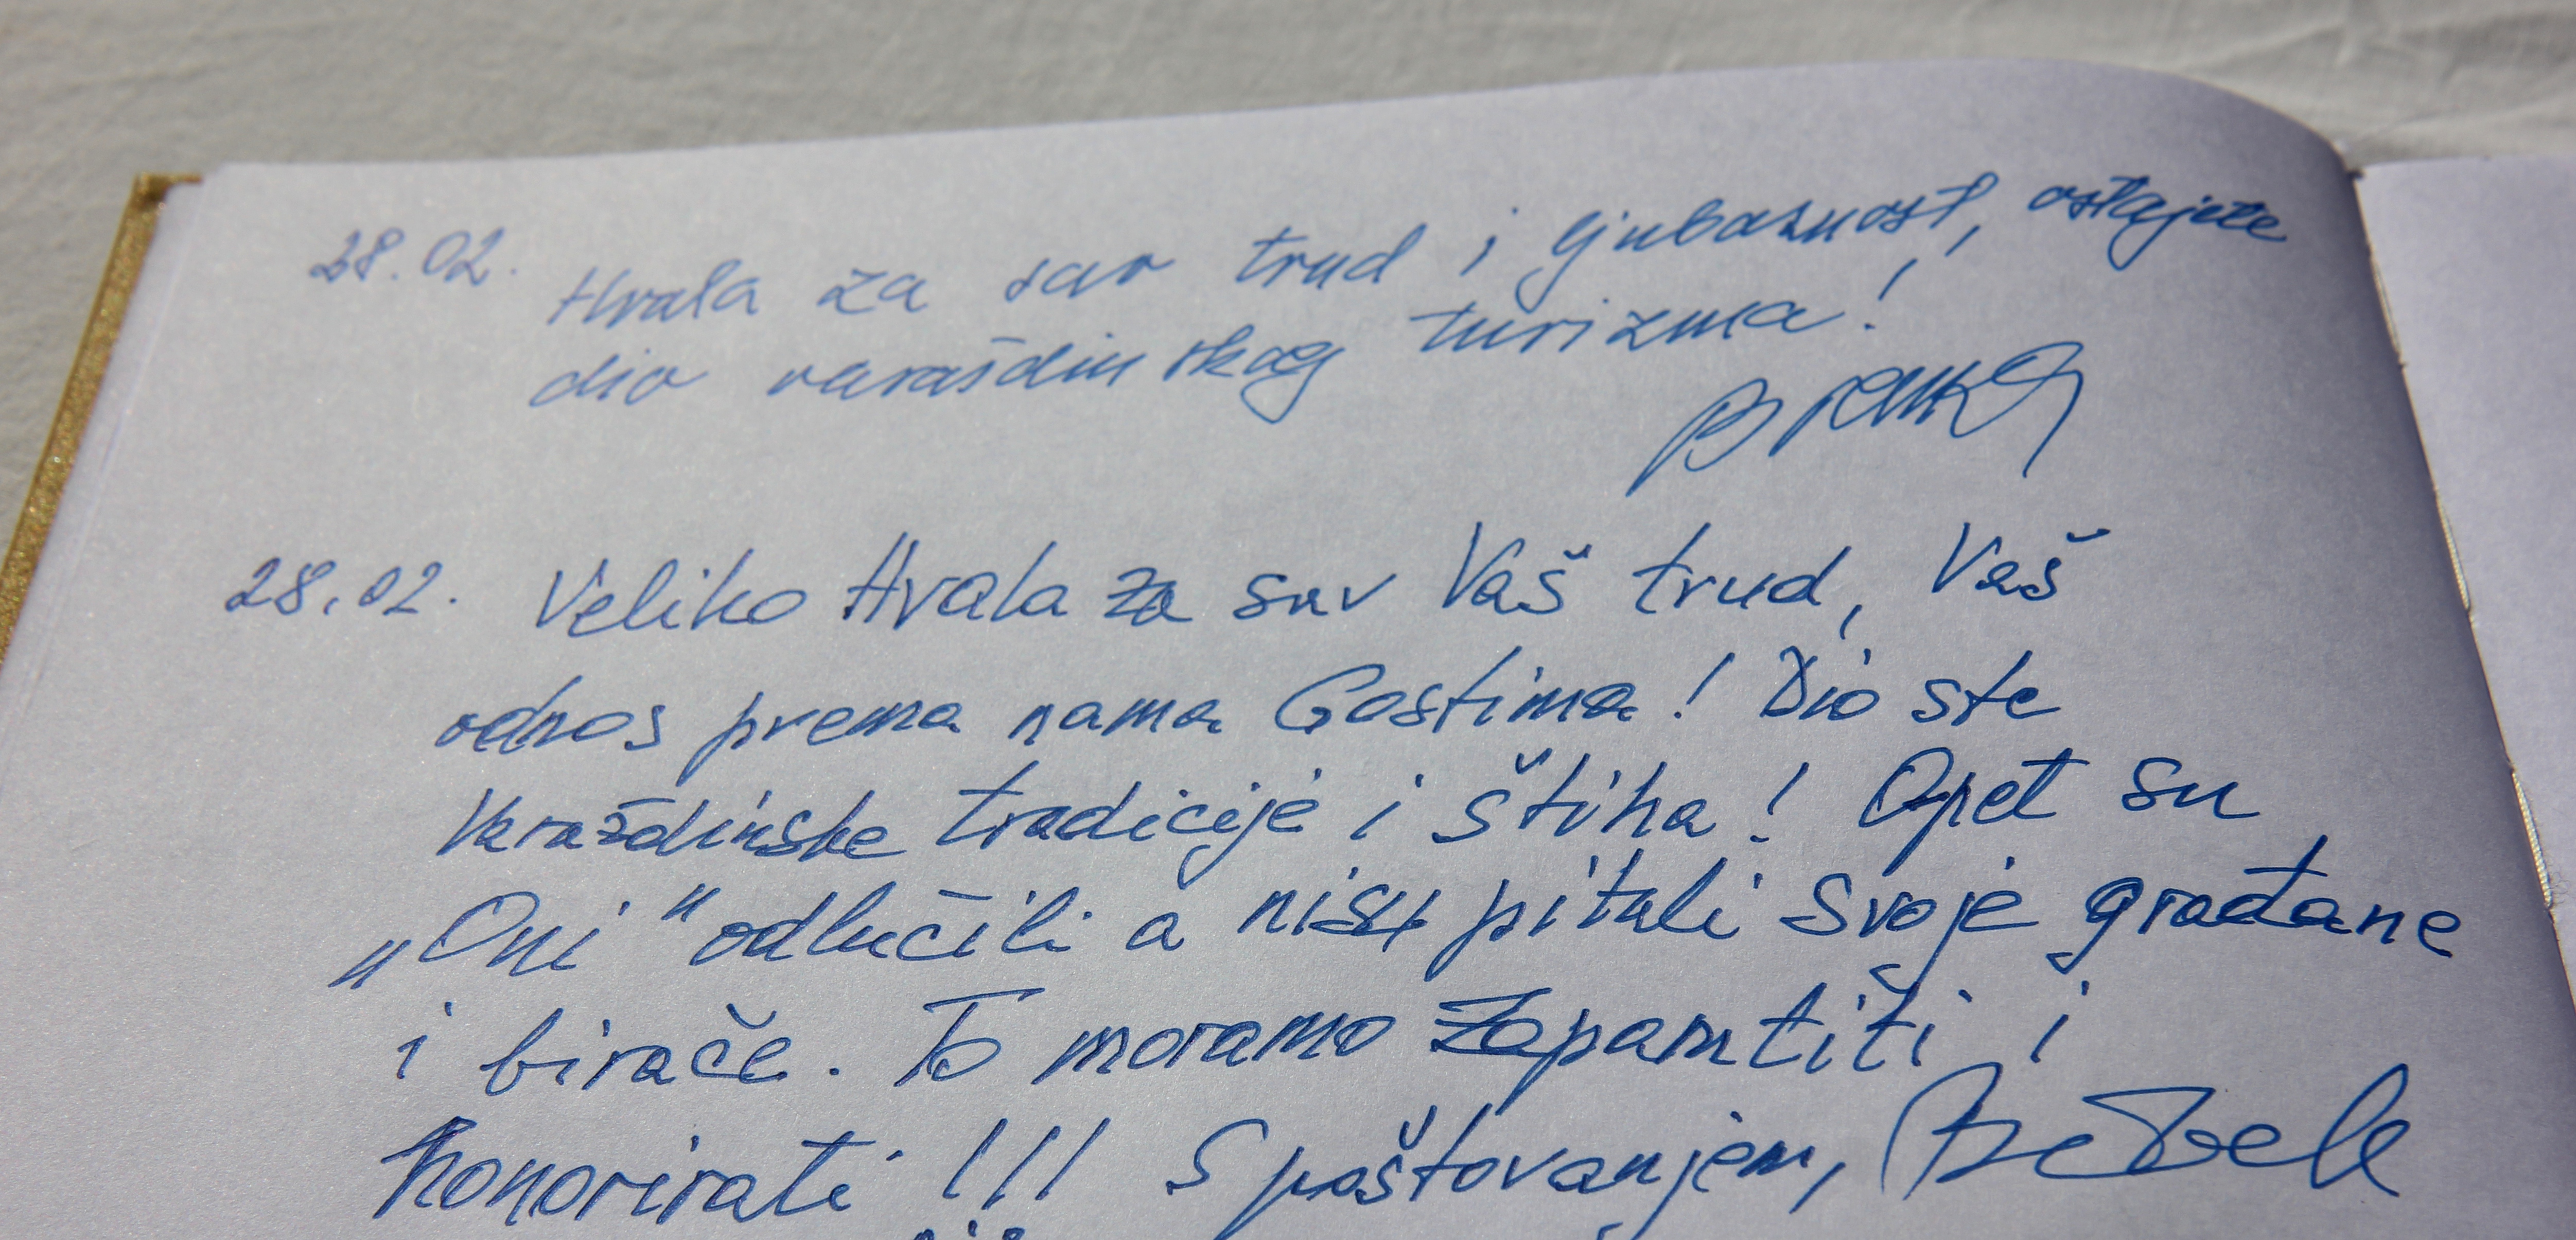 28.02. Hvala za sav trud i ljubaznost, ostajete
dio varaždinskog turizma!
28.02. Veliko Hvala za sav Vaš trud, Vaš
odnos prema nama Gostima! Dio ste
Varaždinske tradicije i štiha! Opet su
„Oni" odlučili a nisu pitali svoje građane
i birače. To moramo zapamtiti i
honorirati!!! S poštovanjem,